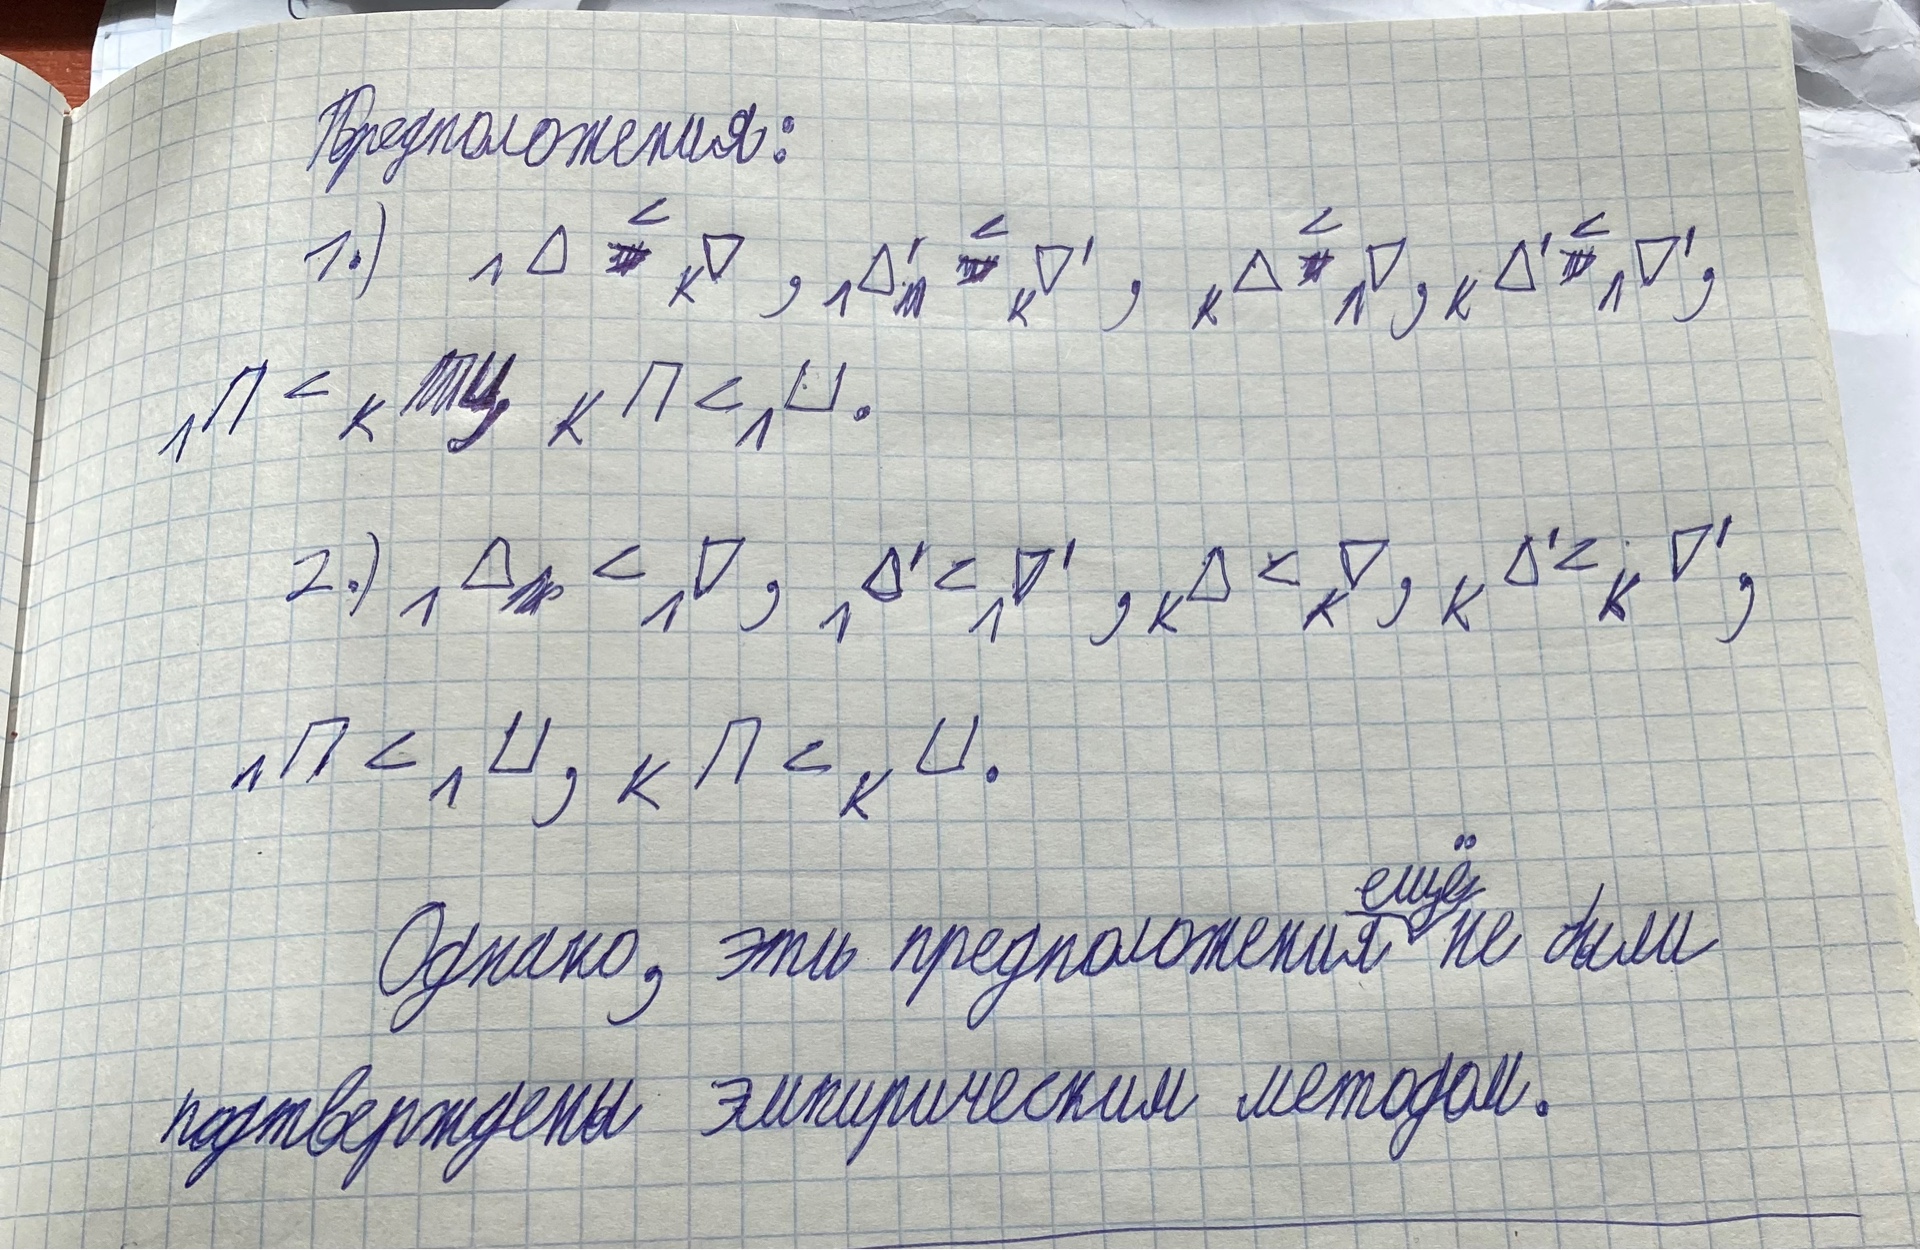 Предположения:
1.) ₗΔ < ₖ∇, ₗΔ' < ₖ∇', ₖΔ < ₗ∇, ₖΔ' < ₗ∇',
ₗП < ₖ⊔, ₖП < ₗ⊔.
2.) ₗΔ < ₗ∇, ₗΔ' < ₗ∇', ₖΔ < ₖ∇, ₖΔ' < ₖ∇',
ₗП < ₗ⊔, ₖП < ₖ⊔.
Однако, эти предположения ещё не были
подтверждены эмпирическим методом.